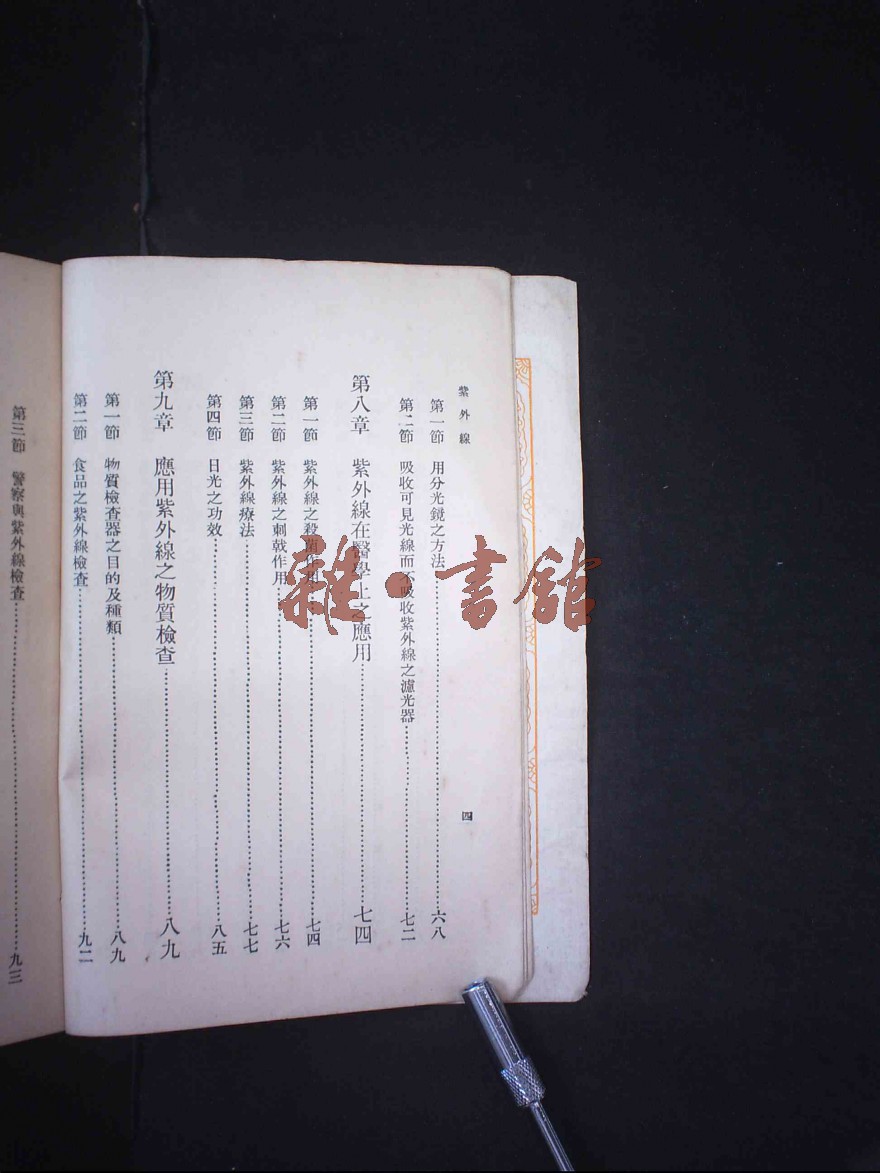 紫外線
四
第一節 用分光鏡之方法 六八
第二節 吸收可見光線而不吸收紫外線之濾光器 七二
第八章 紫外線在醫學上之應用 七四
第一節 紫外線之殺菌作用 七四
第二節 紫外線之刺戟作用 七六
第三節 紫外線療法 七七
第四節 日光之功效 八五
第九章 應用紫外線之物質檢查 八九
第一節 物質檢查器之目的及種類 八九
第二節 食品之紫外線檢查 九二
第三節 警察與紫外線檢查 九三
雜·書館